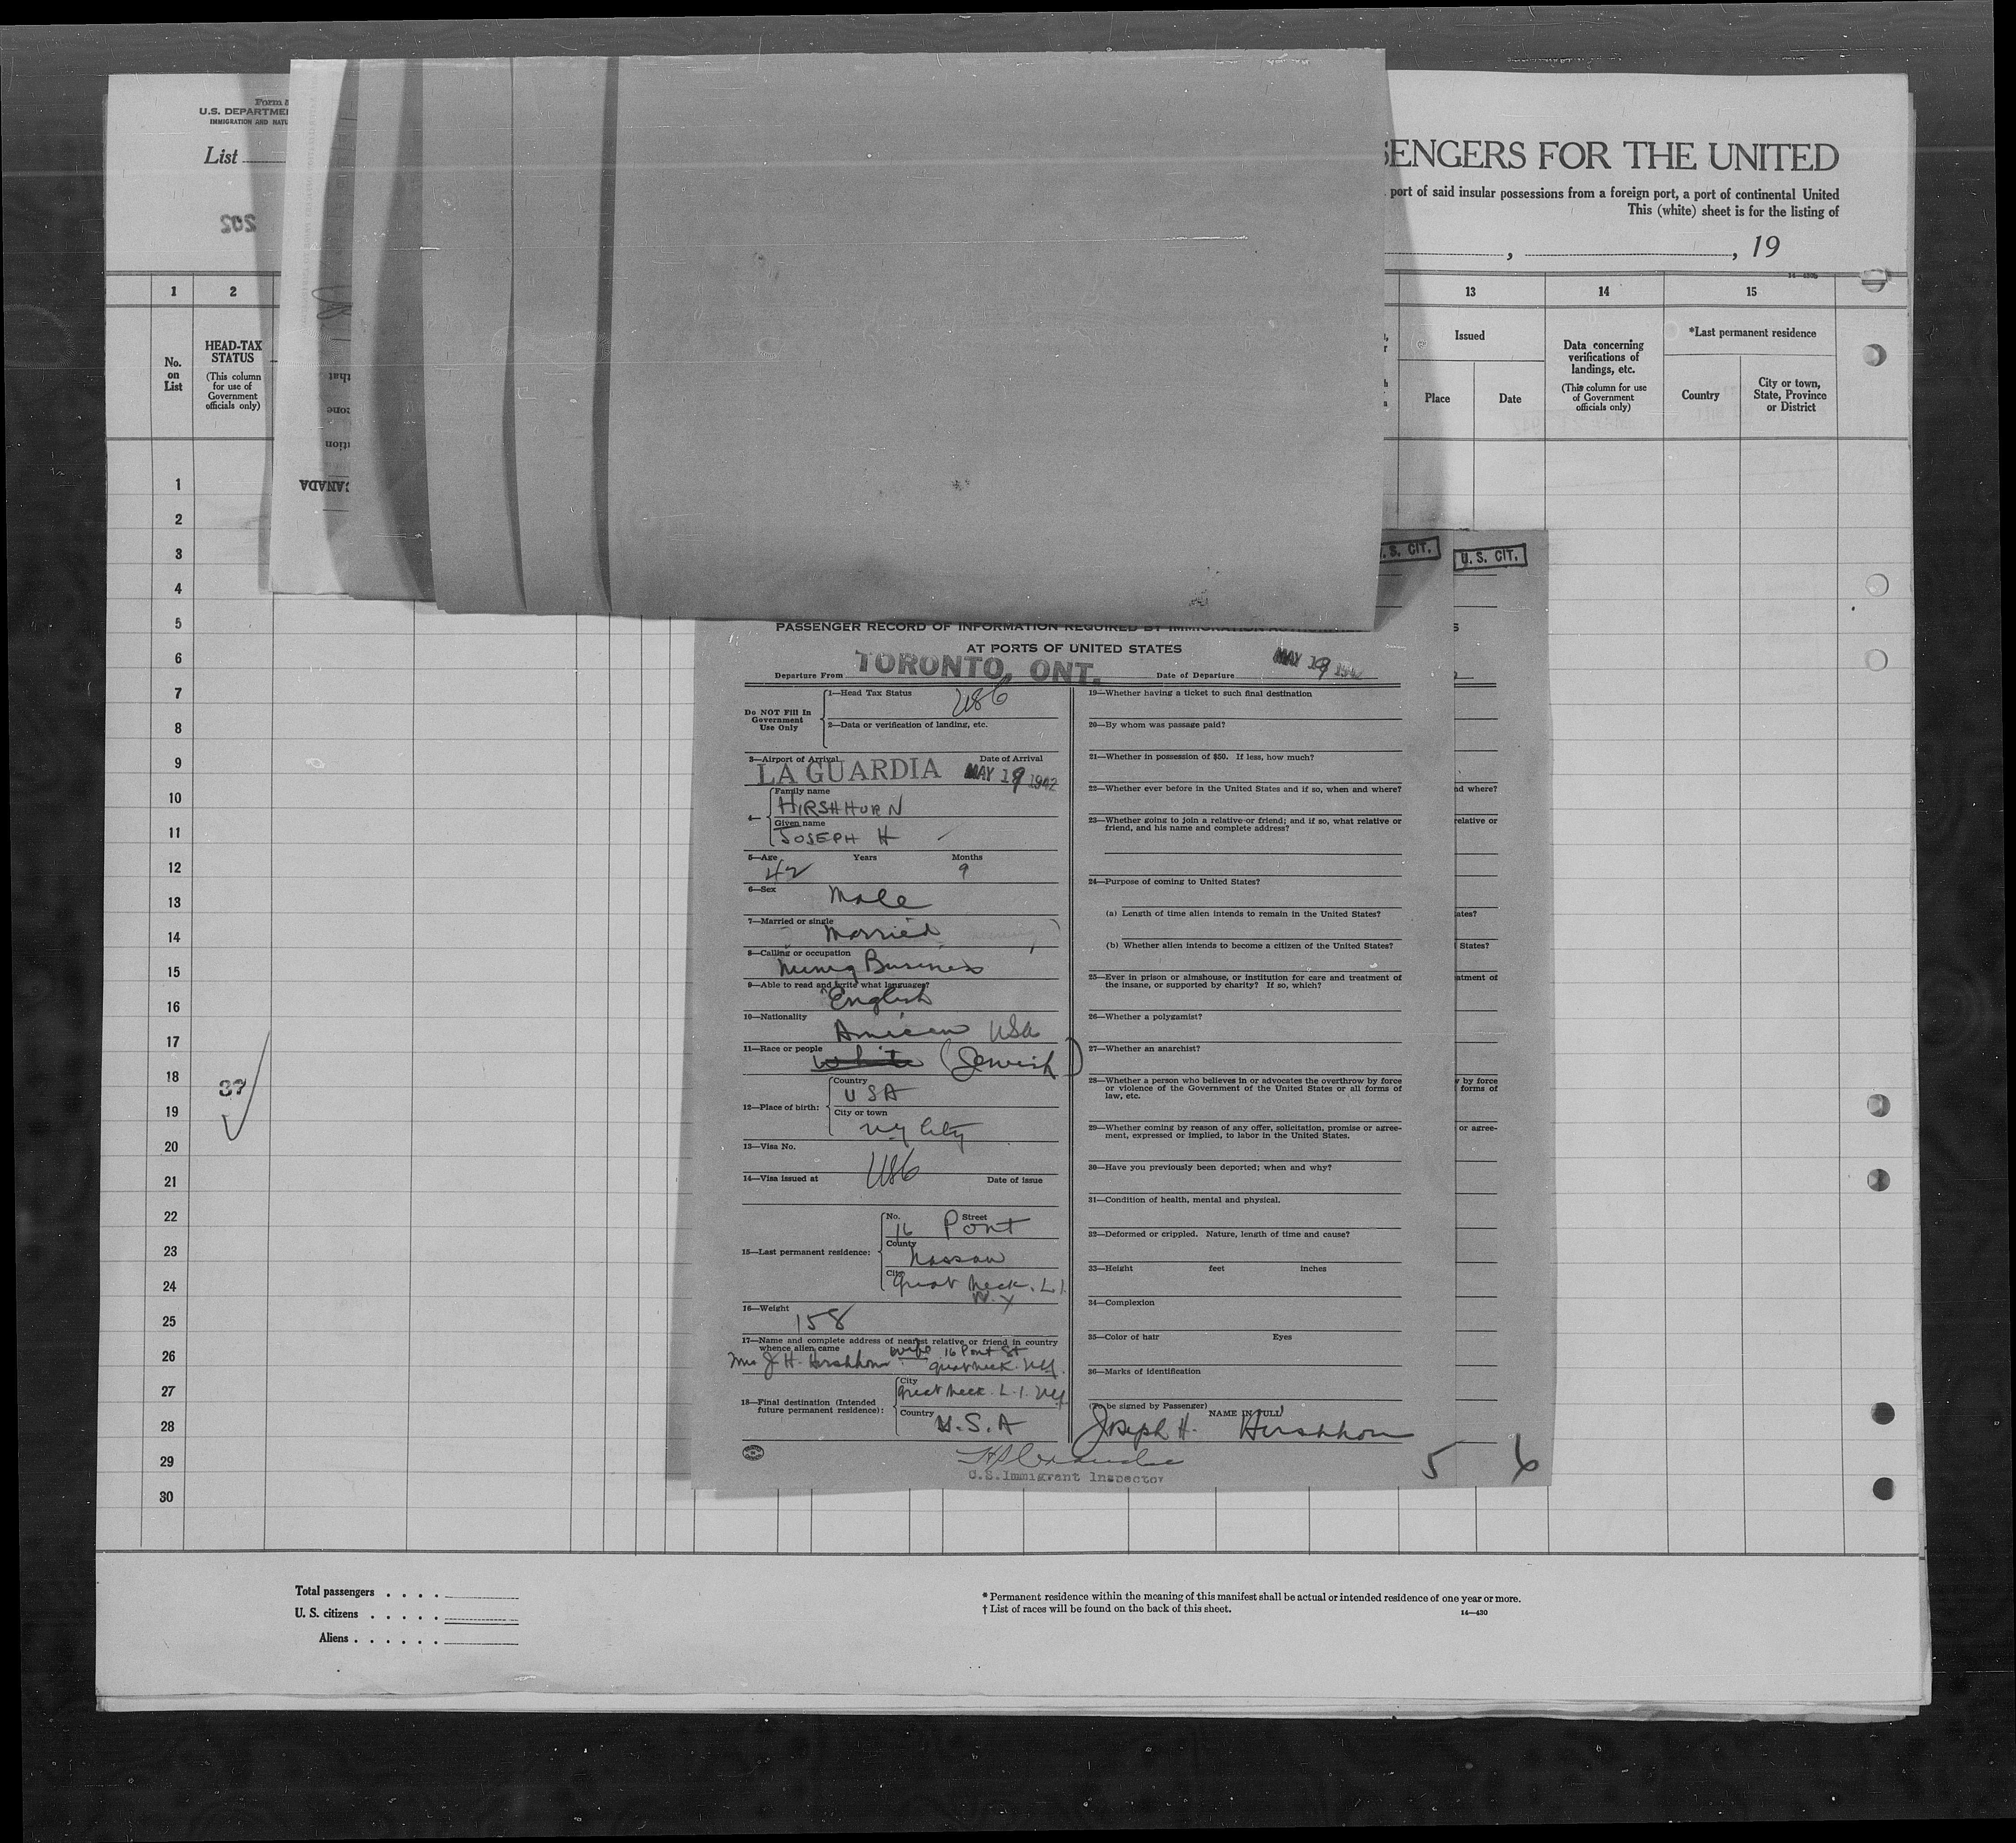 Form
U.S. DEPARTME
IMMIGRATION AND NATU
List
202
SENGERS FOR THE UNITED
port of said insular possessions from a foreign port, a port of continental United
This (white) sheet is for the listing of
, , 19
1 2 13 14 15
No. on List
HEAD-TAX STATUS
(This column for use of Government officials only)
Issued
Place Date
Data concerning verifications of landings, etc.
(This column for use of Government officials only)
*Last permanent residence
Country
City or town, State, Province or District
that
zone
ition
CANADA
1
2
3
4
5
6
7
8
9
10
11
12
13
14
15
16
17
18
19
20
21
22
23
24
25
26
27
28
29
30
87
.S. CIT. U.S. CIT.
PASSENGER RECORD OF INFORMATION REQUIRED BY IMMIGRATION
AT PORTS OF UNITED STATES
Departure From TORONTO, ONT. Date of Departure MAY 19 1942
Do NOT Fill In Government Use Only
1—Head Tax Status USC
2—Data or verification of landing, etc.
3—Airport of Arrival Date of Arrival
LA GUARDIA MAY 19 1942
4—
Family name
HIRSHHORN
Given name
JOSEPH H
5—Age Years Months
42 9
6—Sex
Male
7—Married or single
Married
8—Calling or occupation
Mining Business
9—Able to read and write what languages?
English
10—Nationality
American USA
11—Race or people
White (Jewish)
12—Place of birth:
Country
USA
City or town
NY City
13—Visa No.
USC
14—Visa issued at Date of issue
15—Last permanent residence:
No. Street
16 Pont
County
Nassau
City
Great Neck. L.I.
N.Y
16—Weight
158
17—Name and complete address of nearest relative or friend in country
whence alien came
Mrs J. H. Hirshhorn wife 16 Pont St
Great Neck. NY.
18—Final destination (Intended
future permanent residence):
City
Great Neck. L.I. NY
Country
U.S.A
19—Whether having a ticket to such final destination
20—By whom was passage paid?
21—Whether in possession of $50. If less, how much?
22—Whether ever before in the United States and if so, when and where?
23—Whether going to join a relative or friend; and if so, what relative or
friend, and his name and complete address?
24—Purpose of coming to United States?
(a) Length of time alien intends to remain in the United States?
(b) Whether alien intends to become a citizen of the United States?
25—Ever in prison or almshouse, or institution for care and treatment of
the insane, or supported by charity? If so, which?
26—Whether a polygamist?
27—Whether an anarchist?
28—Whether a person who believes in or advocates the overthrow by force
or violence of the Government of the United States or all forms of
law, etc.
29—Whether coming by reason of any offer, solicitation, promise or agree-
ment, expressed or implied, to labor in the United States.
30—Have you previously been deported; when and why?
31—Condition of health, mental and physical.
32—Deformed or crippled. Nature, length of time and cause?
33—Height feet inches
34—Complexion
35—Color of hair Eyes
36—Marks of identification
(To be signed by Passenger) NAME IN FULL
Joseph H. Hirshhorn
U.S. Immigrant Inspector
5 6
nd where?
relative or
ates?
States?
atment of
y by force
forms of
or agree-
Total passengers . . . .
U. S. citizens . . . . .
Aliens . . . . . .
* Permanent residence within the meaning of this manifest shall be actual or intended residence of one year or more.
† List of races will be found on the back of this sheet.
14—430